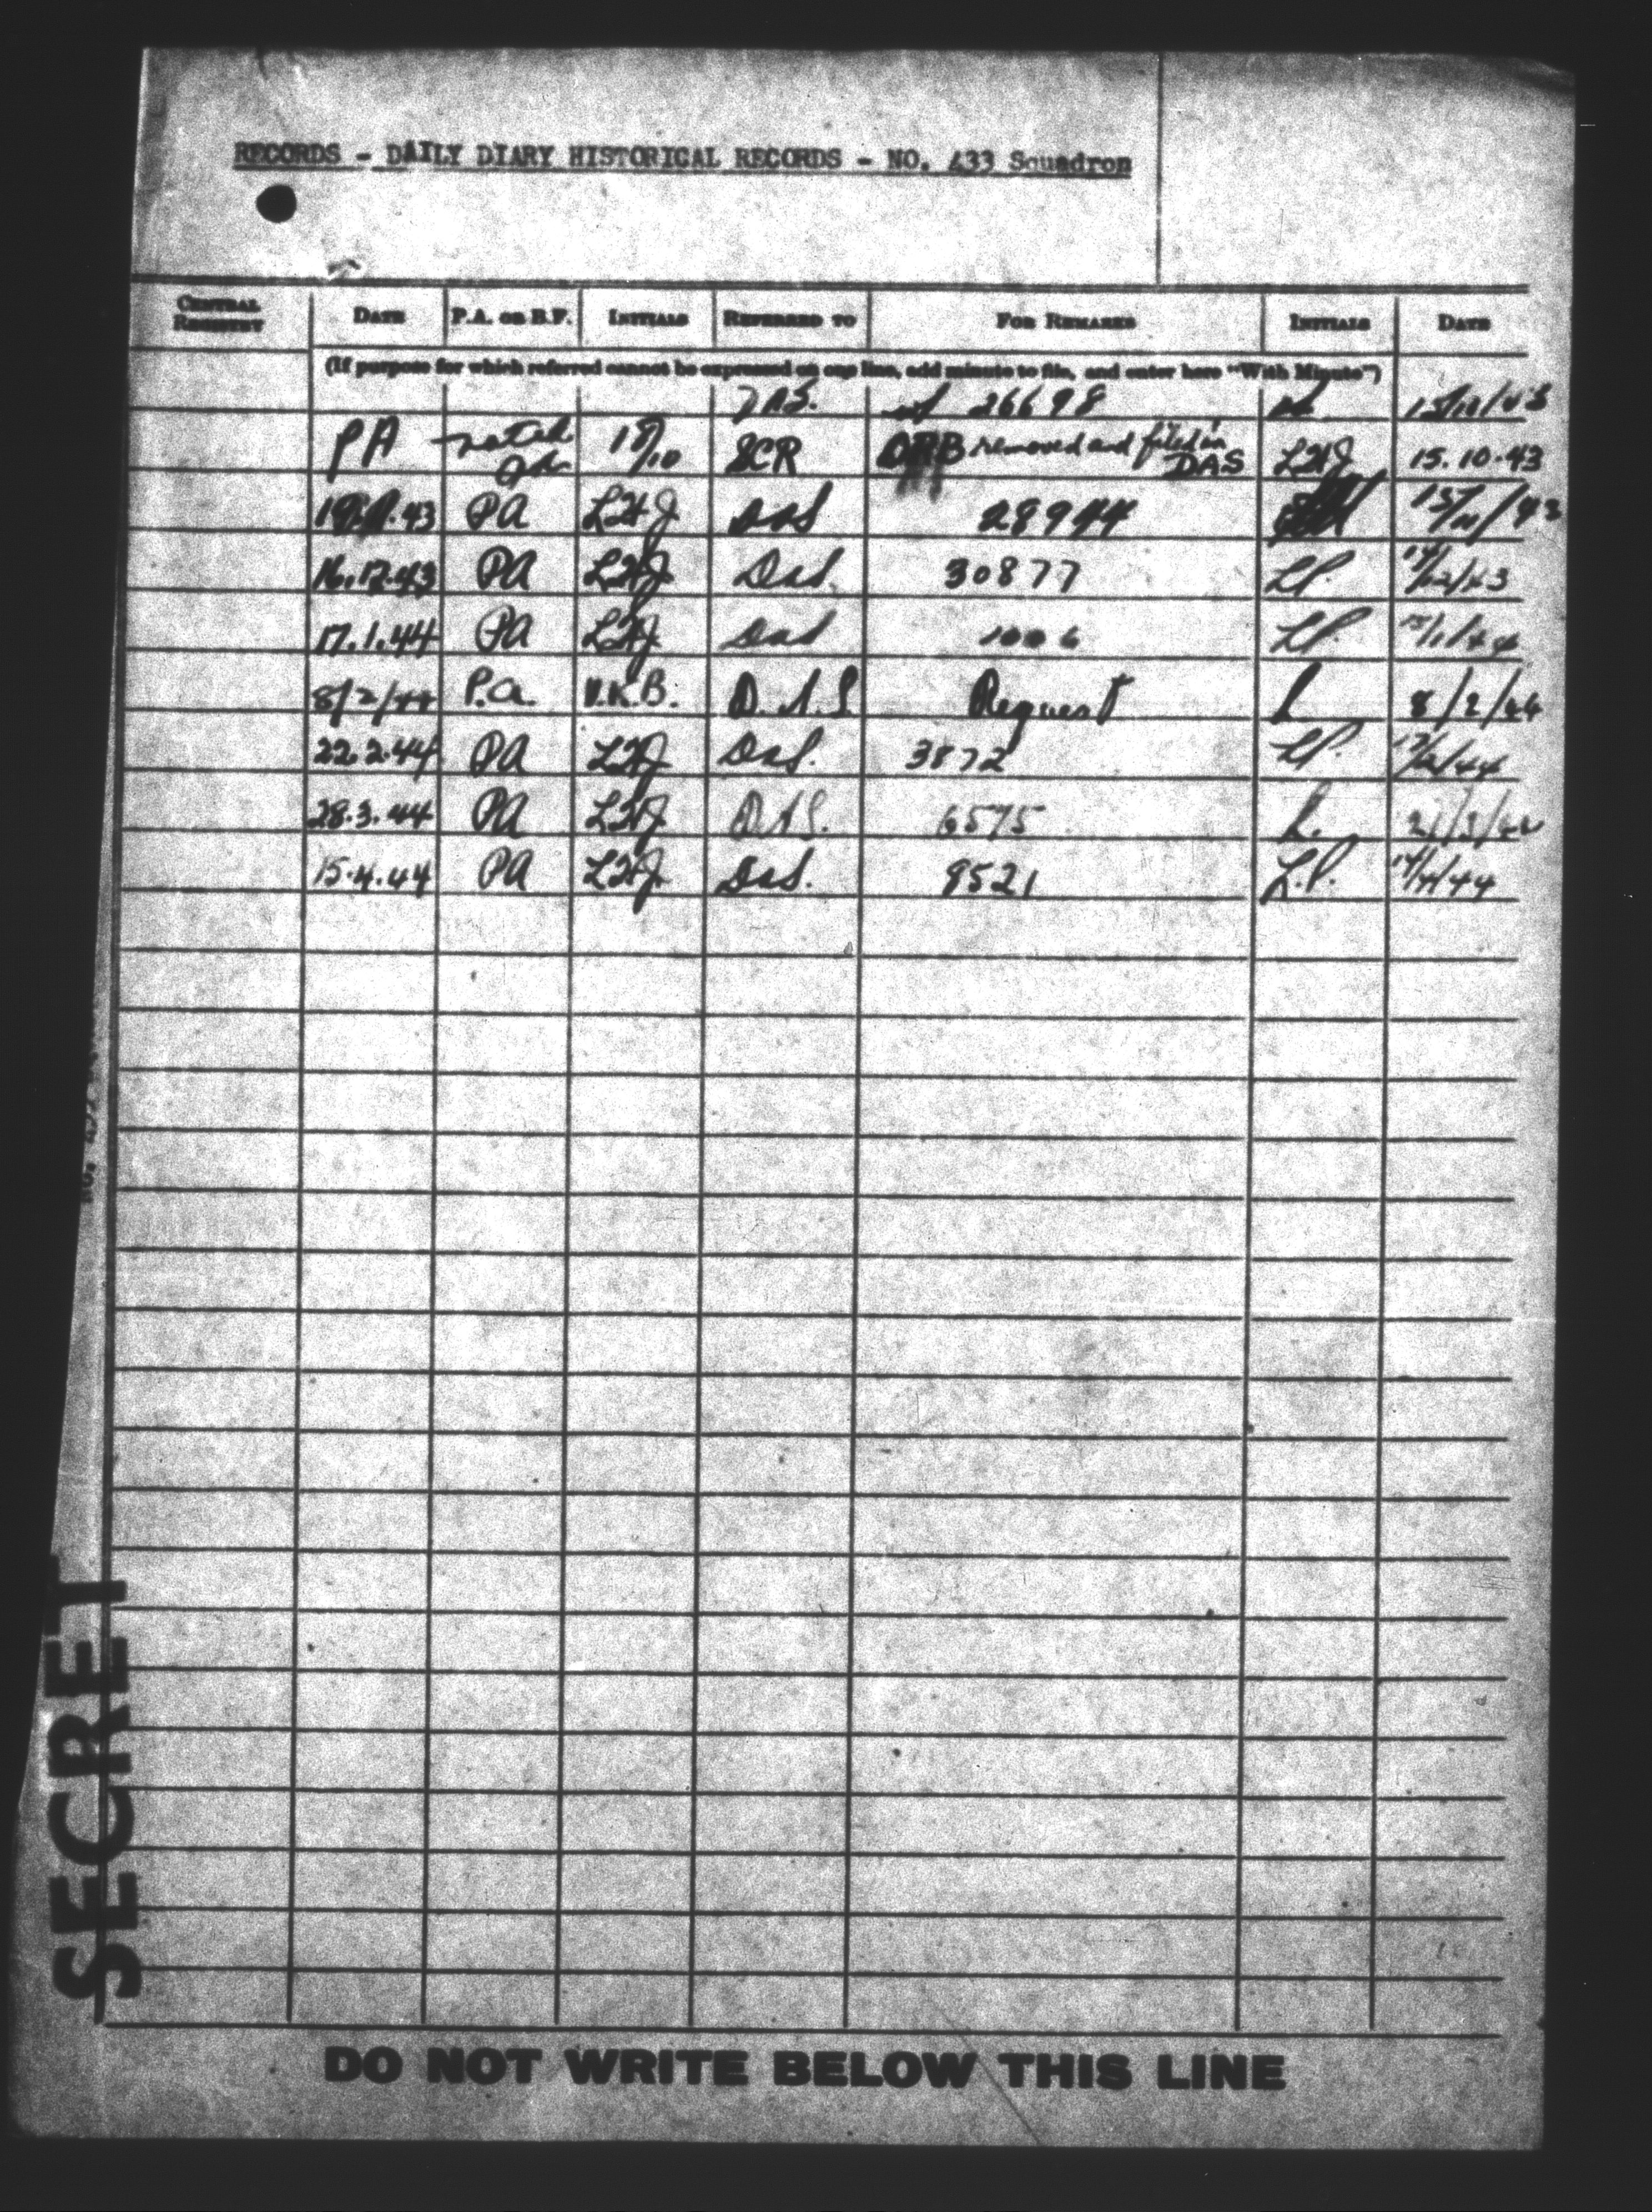 RECORDS - DAILY DIARY HISTORICAL RECORDS - NO. 433 Squadron
CENTRAL REGISTRY DATE P.A. OR B.F. INITIALS REFERRED TO FOR REMARKS INITIALS DATE
(If purpose for which referred cannot be expressed on one line, add minute to file, and enter here "With Minute")
DAS. 26698
PA noted 18/10 SCR ORB removed and filed in DAS LHJ 15.10.43
PA LHJ DAS 28944
16.12.43 PA LHJ DAS. 30877 LP.
17.1.44 PA LHJ DAS 1006 LP.
8/2/44 P.a. V.K.B. D.A.S Request L 8/2/44
22.2.44 PA LHJ DAS. 3872 LP.
28.3.44 PA LHJ DAS. 6575 L.
15.4.44 PA LHJ DAS. 9521 L.P. 14/4/44
SECRET
DO NOT WRITE BELOW THIS LINE